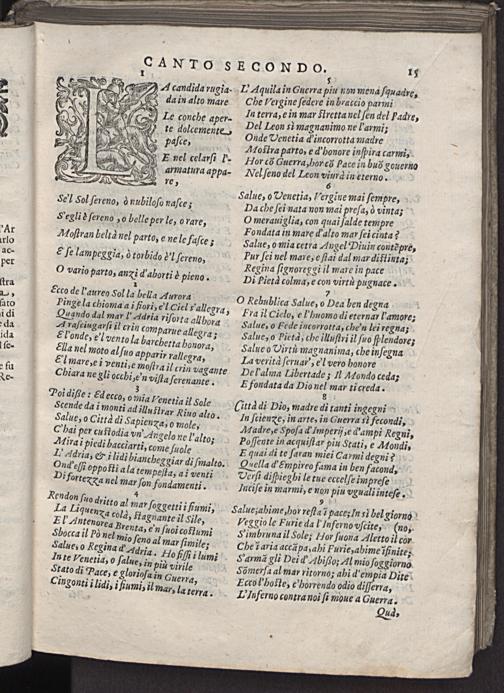 CANTO SECONDO. 15
1
LA candida rugia-
da in alto mare
Le conche aper-
te dolcemente
pasce,
E nel celarsi l'-
armatura appa-
re,
Se'l Sol sereno, ò nubiloso nasce;
S'egli è sereno, o belle per le, o rare,
Mostran beltà nel parto, e ne le fasce;
E se lampeggia, ò torbido è'l sereno,
O vario parto, anzi d'aborti è pieno.
2
Ecco de l'aureo Sol la bella Aurora
Pinge la chioma a i fiori, e'l Ciel s'allegra,
Quando dal mar l'Adria risorta allhora
A rasciugarsi il crin comparue allegra;
E l'onde, e'l vento la barchetta honora,
Ella nel moto al suo apparir rallegra,
E'l mare, e i venti, e mostra il crin vagante
Chiara ne gli occhi, e'n vista serenante.
3
Poi disse: Ed ecco, o mia Venetia il Sole
Scende da i monti ad illustrar Riuo alto.
Salue, o Città di Sapienza, o mole,
C'hai per custodia vn'Angelo ne l'alto;
Mira i piedi bacciarti, come suole
L'Adria, & i lidi biancheggiar di smalto.
Ond'essi opposti a la tempesta, a i venti
Di fortezza nel mar son fondamenti.
4
Rendon suo dritto al mar soggetti i fiumi,
La Liquenza colà, stagnante il Sile,
E l'Antenorea Brenta, e'n suoi costumi
Sbocca il Pò nel mio seno al mar simile;
Salue, o Regina d'Adria. Ho fissi i lumi
In te Venetia, o salue, in più virile
Stato di Pace, e gloriosa in Guerra,
Cingonti i lidi, i fiumi, il mar, la terra.
5
L'Aquila in Guerra piu non mena squadre,
Che Vergine sedere in braccio parmi
In terra, e in mar stretta nel sen del Padre,
Del Leon sì magnanimo ne l'armi;
Onde Venetia d'incorrotta madre
Mostra parto, e d'honore inspira carmi,
Hor cō Guerra, hor cō Pace in buō gouerno
Nel seno del Leon viurà in eterno.
6
Salue, o Venetia, Vergine mai sempre,
Da che sei nata non mai presa, ò vinta;
O merauiglia, con quai salde tempre
Fondata in mare d'alto mar sei cinta?
Salue, o mia cetra Angel Diuin contēpre,
Pur sei nel mare, e stai dal mar distinta;
Regina signoreggi il mare in pace
Di Pietà colma, e con virtù pugnace.
7
O Republica Salue, o Dea ben degna
Fra il Cielo, e l'huomo di eternar l'amore;
Salue, o Fede incorrotta, che'n lei regna;
Salue, o Pietà, che illustri il suo splendore;
Salue o Virtù magnanima, che insegna
La verità seruar', e'l vero honore
De l'alma Libertade; Il Mondo ceda;
E fondata da Dio nel mar ti creda.
8
Città di Dio, madre di tanti ingegni
In scienze, in arte, in Guerra sì fecondi,
Madre, e Sposa d'Imperij, e d'ampi Regni,
Possente in acquistar piu Stati, e Mondi,
E quai di te saran miei Carmi degni?
Quella d'Empireo fama in ben facond,
Versi dispieghi le tue eccelse imprese
Incise in marmi, e non piu vguali intese.
9
Salue; ahime, hor resta ī pace; In sì bel giorno
Veggio le Furie da l'Inferno vscite, (no,
S'imbruna il Sole; Hor suona Aletto il cor
Che ī aria accāpa, ahi Furie, ahime īfinite;
S'armā gli Dei d'Abisso; Al mio soggiorno
Sōmersa al mar ritorno; ahi d'empia Dite
Ecco l'hoste, e'horrendo odio disserra,
L'Inferno contra noi si moue a Guerra.
Quà,
l'Ar
arlo
ac-
per
stra
fato
di
da
ida
se-
e fu
Re-